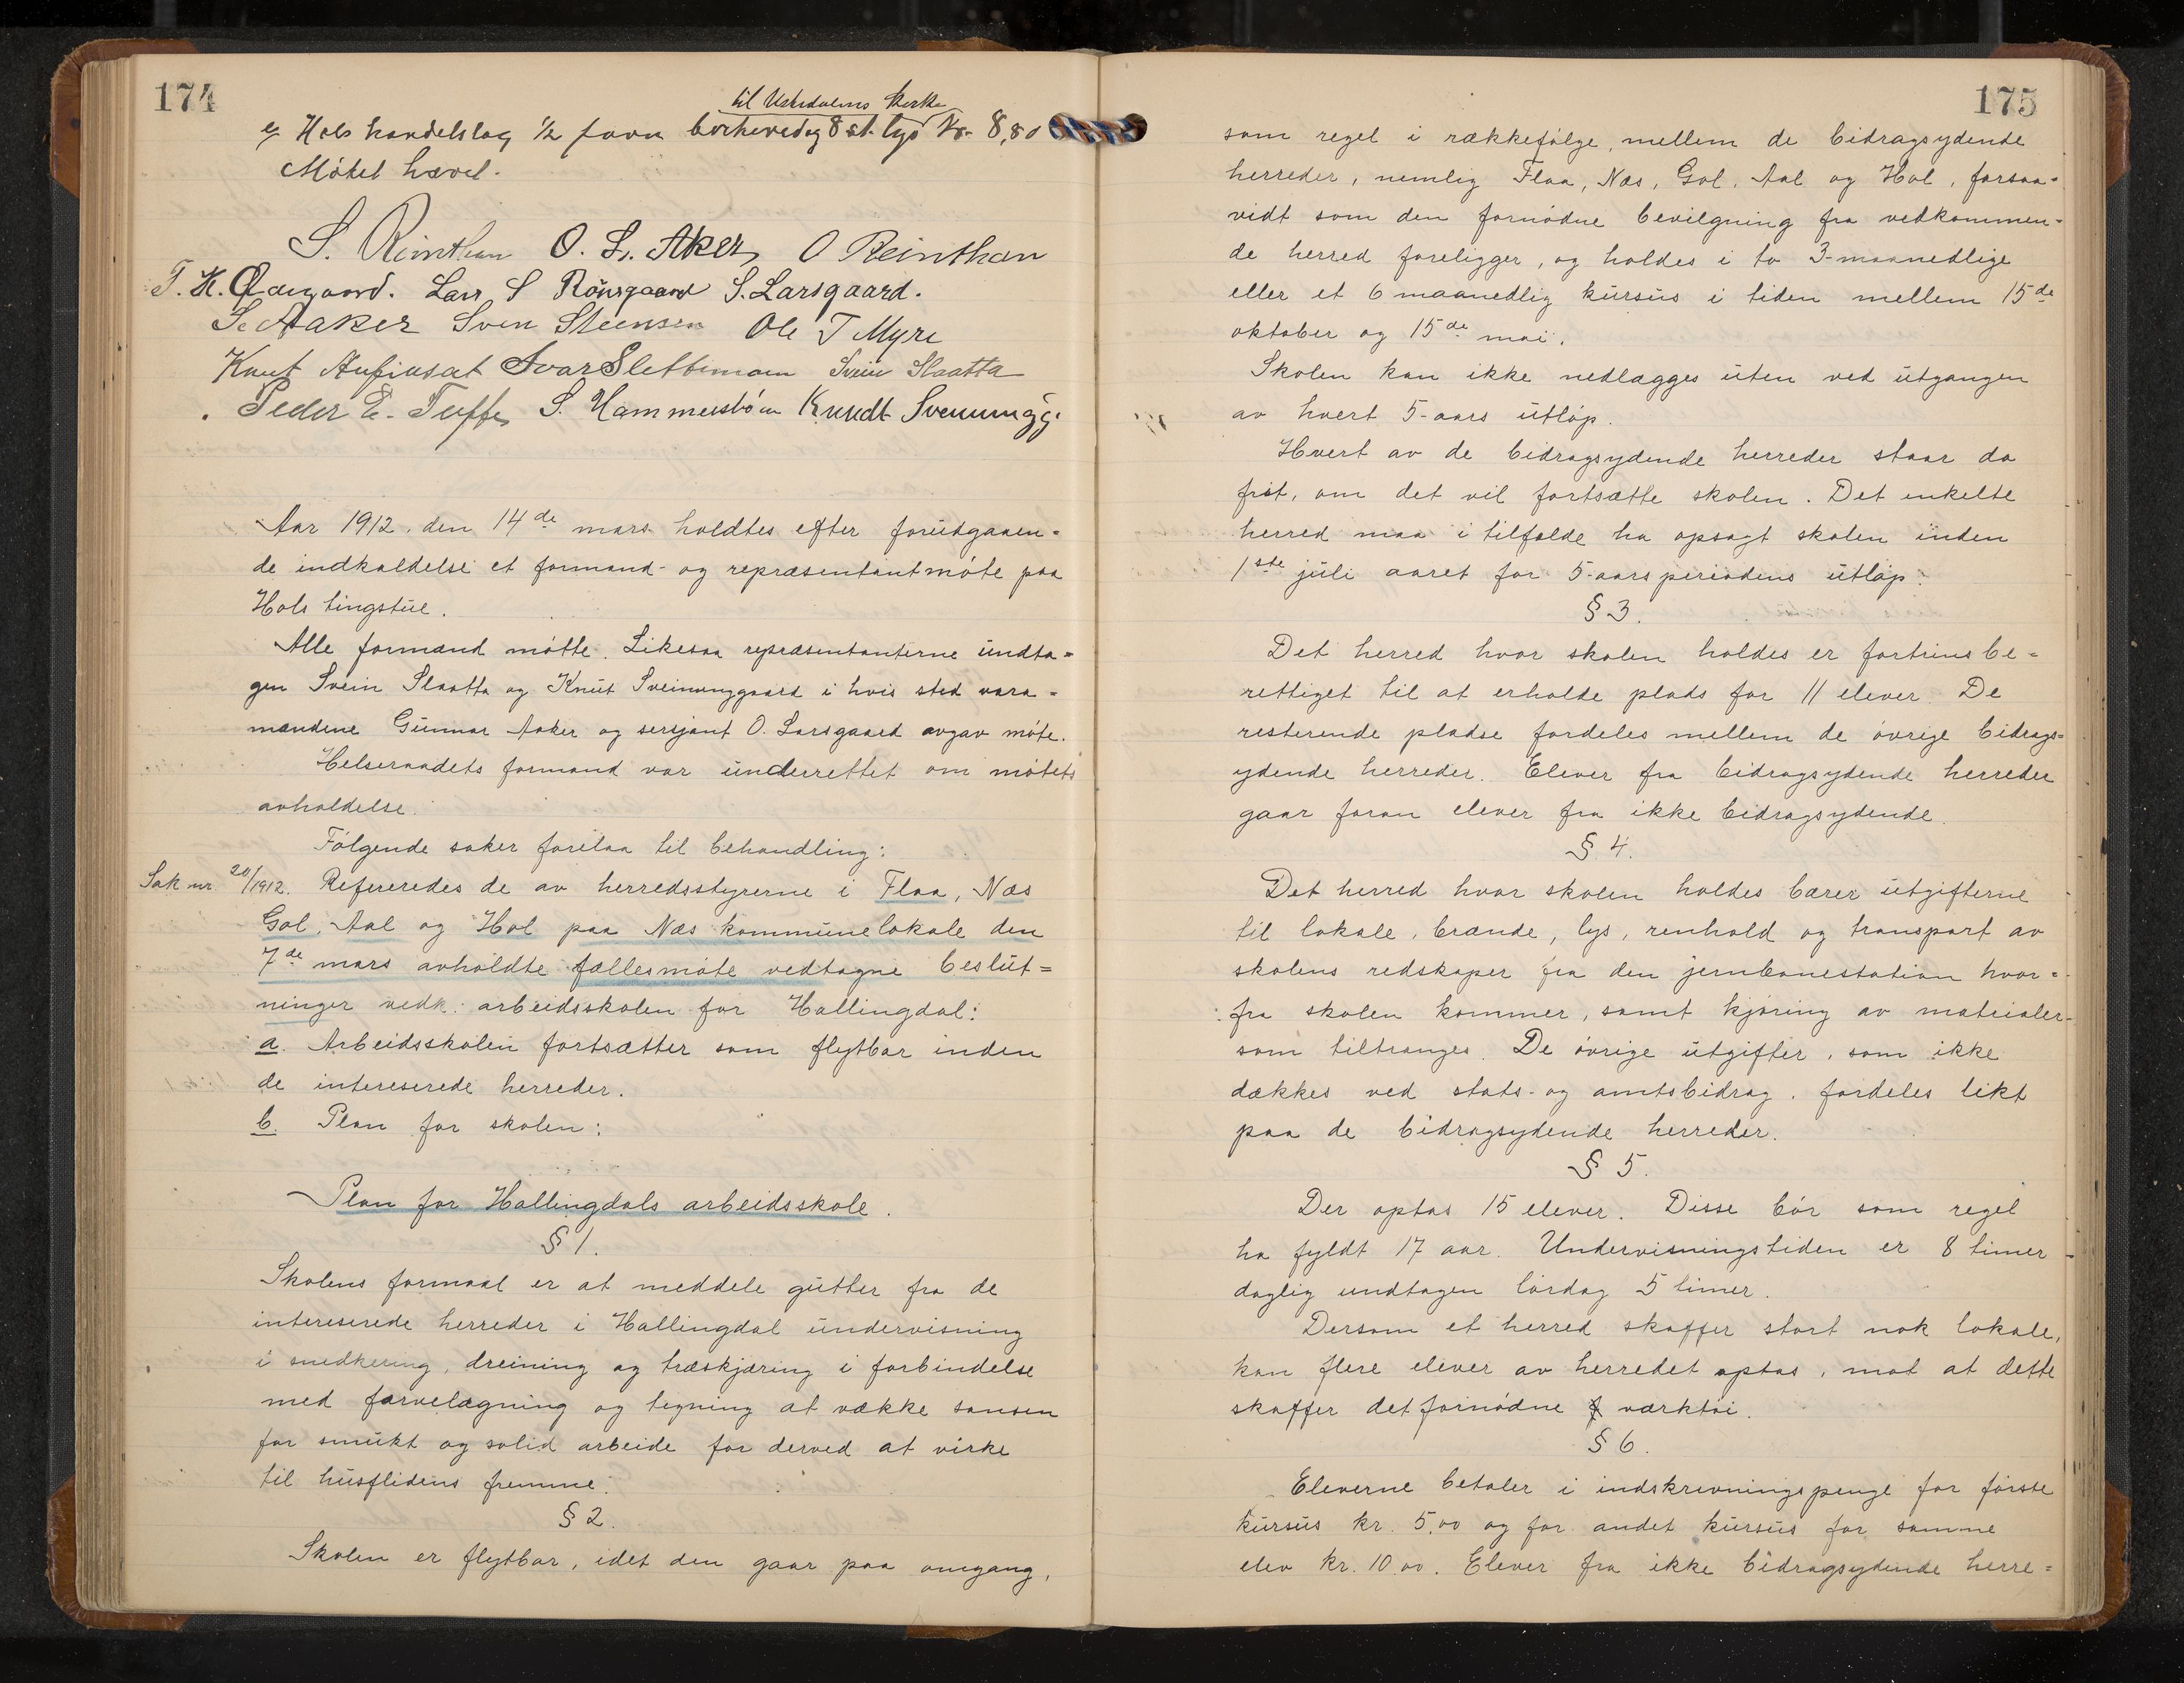 174
til Ustedalens kirke
g, Hols handelslag ½ favn birkeved og 8 st. lys Kr. 8,80
Møtet hævet.
S. Reinthon O. L. Aker, O Reinthon
T. K. Lars S Rönsgaard S. Larsgaard.
S. Aaker Sven Steensen Ole T Myre
Knut Ivar Slettemoen Svein Slaatta
Peder E. Tuffe, S. Hammersbøen Knudt
Aar 1912, den 14de mars holdtes efter forutgaaen-
de indkaldelse et formand- og repræsentantmøte paa
Hols tingstue.
Alle formænd møtte. Likesaa repræsentanterne undta-
gen Svein Slaatta og Knut Sveinunggaard i hvis sted vara-
mændene Gunnar Aaker og sersjant O. Larsgaard avgav møte.
Helseraadets formand var underrettet om møtets
avholdelse.
Følgende saker forelaa til behandling:
Sak nr. 20/1912. Refereredes de av herredsstyrerne i Flaa, Næs
Gol, Aal og Hol paa Næs kommunelokale den
7de mars avholdte fællesmøte vedtagne beslut=
ninger vedk. arbeidsskolen for Hallingdal:
a. Arbeidsskolen fortsætter som flytbar inden
de intereserede herreder.
b. Plan for skolen:
Plan for Hallingdals arbeidsskole.
§ 1.
Skolens formaal er at meddele gutter fra de
intereserede herreder i Hallingdal undervisning
i snedkering, dreining og træskjæring i forbindelse
med farvelægning og tegning at vække sansen
for smukt og solid arbeide for derved at virke
til husflidens fremme.
§ 2.
Skolen er flytbar, idet den gaar paa omgang,
175
som regel i rækkefølge, mellem de bidragsydende
herreder, nemlig Flaa, Næs, Gol, Aal og Hol, forsaa-
vidt som den fornødne bevilgning fra vedkommen-
de herred foreligger, og holdes i to 3-maanedlige
eller et 6 maanedlig kursus i tiden mellem 15de
oktober og 15de mai.
Skolen kan ikke nedlægges uten ved utgangen
av hvert 5-aars utløp.
Hvert av de bidragsydende herreder staar da
frit, om det vil fortsætte skolen. Det enkelte
herred maa i tilfælde ha opsagt skolen inden
1ste juli aaret før 5-aarsperiodens utløp.
§ 3.
Det herred hvor skolen holdes er fortrinsbe-
rettiget til at erholde plads for 11 elever. De
resterende pladse fordeles mellem de øvrige bidrags-
ydende herreder. Elever fra bidragsydende herreder
gaar foran elever fra ikke bidragsydende.
§ 4.
Det herred hvor skolen holdes bærer utgifterne
til lokale, brænde, lys, renhold og transport av
skolens redskaper fra den jernbanestation hvor-
fra skolen kommer, samt kjøring av materialer
som tiltrænges. De øvrige utgifter, som ikke
dækkes ved stats- og amtsbidrag, fordeles likt
paa de bidragsydende herreder.
§ 5.
Der optas 15 elever. Disse bør som regel
ha fyldt 17 aar. Undervisningstiden er 8 timer
daglig undtagen lørdag 5 timer.
Dersom et herred skaffer stort nok lokale,
kan flere elever av herredet optas, mot at dette
skaffer det fornødne værktøi.
§ 6.
Eleverne betaler i indskrivningspenge for første
kursus kr. 5,00 og for andet kursus for samme
elev kr. 10,00. Elever fra ikke bidragsydende herre=